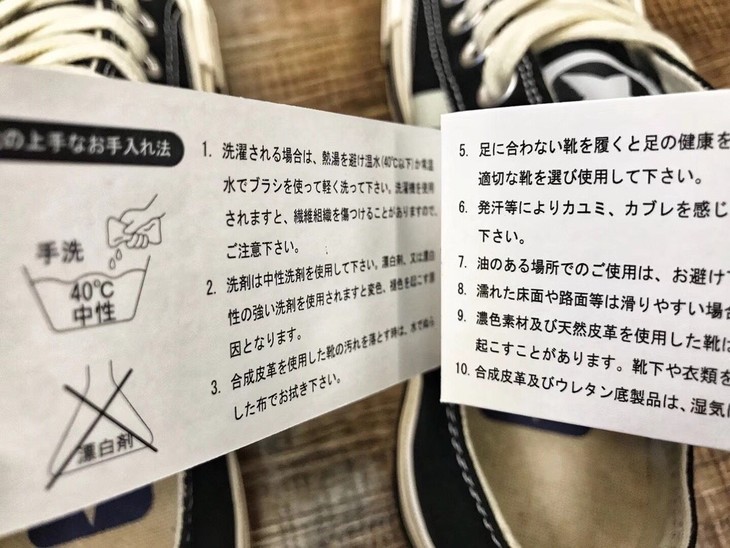 の上手なお手入れ法
手洗
40℃
中性
漂白剤
1. 洗濯される場合は、熱湯を避け温水(40℃以下)か常温
水でブラシを使って軽く洗って下さい。洗濯機を使用
されますと、繊維組織を傷つけることがありますので、
ご注意下さい。
2. 洗剤は中性洗剤を使用して下さい。漂白剤、又は漂白
性の強い洗剤を使用されますと変色、褪色を起こす原
因となります。
3. 合成皮革を使用した靴の汚れを落とす時は、水でぬら
した布でお拭き下さい。
5. 足に合わない靴を履くと足の健康を
適切な靴を選び使用して下さい。
6. 発汗等によりカユミ、カブレを感じ
下さい。
7. 油のある場所でのご使用は、お避け
8. 濡れた床面や路面等は滑りやすい場合
9. 濃色素材及び天然皮革を使用した靴は
起こすことがあります。靴下や衣類を
10. 合成皮革及びウレタン底製品は、湿気に